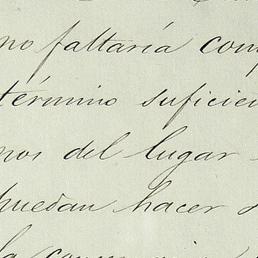 no faltaría com
término suficien
nos del lugar
puedan hacer
la